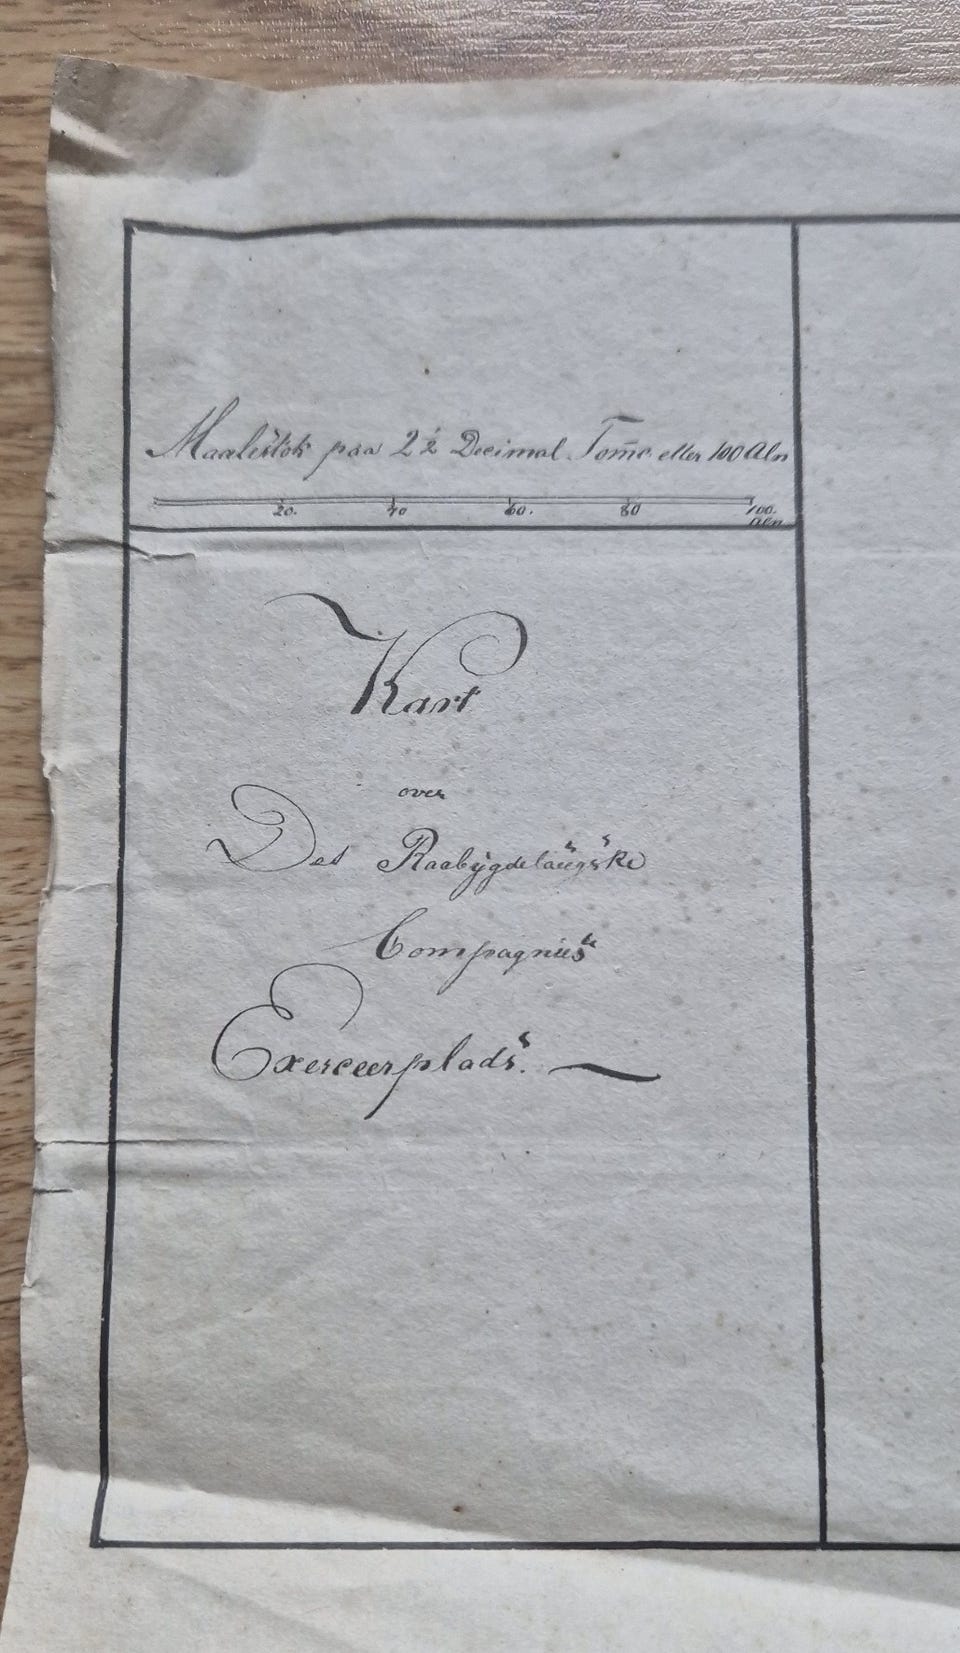 Maalestok paa 2½ Decimal Tom̅e eller 100 Aln
20. 40 60. 80 100.
Aln
Kart
over
Det Raabygdelaugske
Compagnies
Exerceerplads.